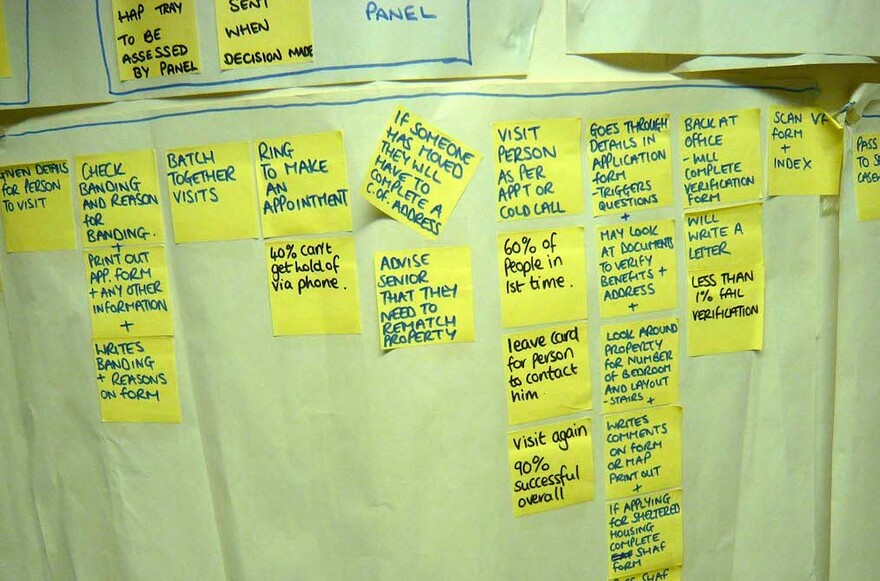 HAP TRAY
TO BE
ASSESSED
BY PANEL
SENT
WHEN
DECISION MADE
PANEL
GIVEN DETAILS
FOR PERSON
TO VISIT
CHECK
BANDING
AND REASON
for
BANDING.
+
PRINT OUT
APP. FORM
+ ANY OTHER
INFORMATION
+
WRITES
BANDING
+ REASONS
ON FORM
BATCH
TOGETHER
VISITS
RING
TO MAKE
AN
APPOINTMENT
40% can't
get hold of
via phone.
IF SOMEONE
HAS MOVED
THEY WILL
HAVE TO
COMPLETE A
C. OF. ADDRESS
ADVISE
SENIOR
THAT THEY
NEED TO
REMATCH
PROPERTY
VISIT
PERSON
AS PER
APPT OR
COLD CALL
60% of
People in
1st time.
leave card
for person
to contact
him.
Visit again
90%
successful
overall
GOES THROUGH
DETAILS IN
APPLICATION
FORM
-TRIGGERS
QUESTIONS
+
MAY LOOK
AT DOCUMENTS
TO VERIFY
BENEFITS +
ADDRESS
+
LOOK AROUND
PROPERTY
FOR NUMBER
OF BEDROOM
AND LAYOUT
- STAIRS +
WRITES
COMMENTS
ON FORM
OR MAP
PRINT OUT
+
IF APPLYING
FOR SHELTERED
HOUSING
COMPLETE
SHAF
FORM
SHAF
BACK AT
OFFICE
- WILL
COMPLETE
VERIFICATION
FORM
WILL
WRITE A
LETTER
LESS THAN
1% FAIL
VERIFICATION
SCAN VF
FORM
+
INDEX
PASS
TO